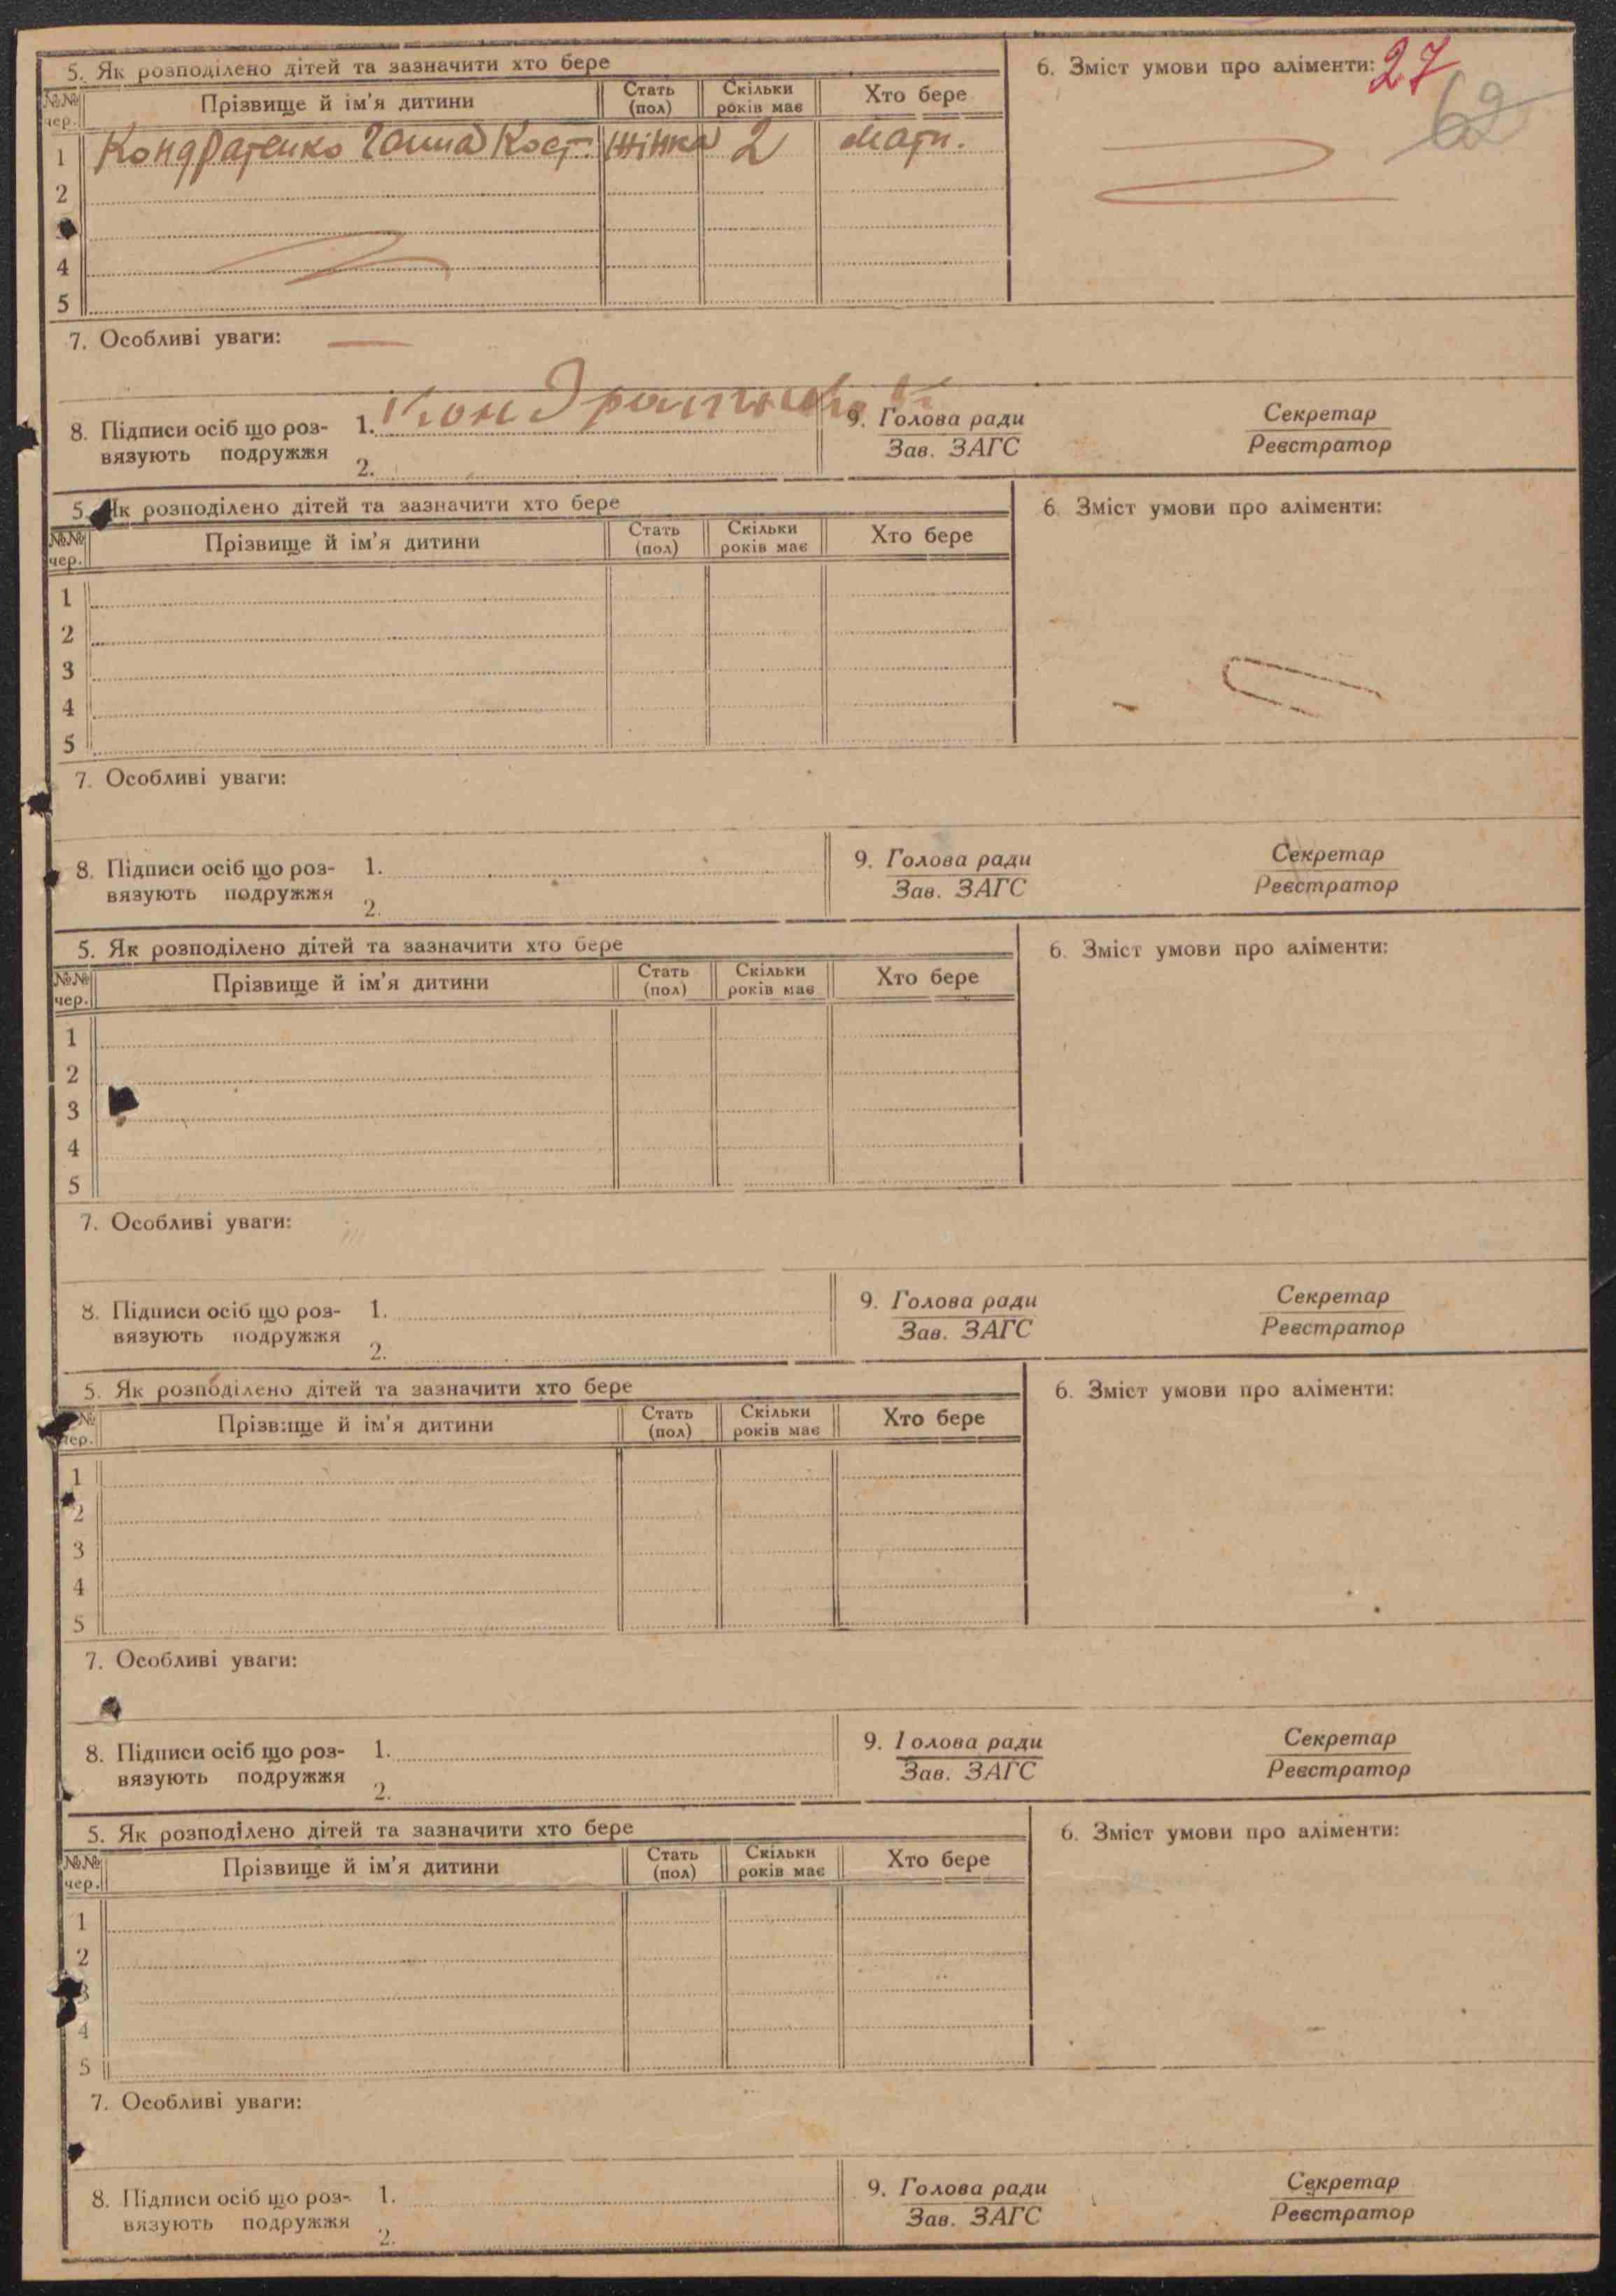 5. Як розподілено дітей та зазначити хто бере
6. Зміст умови про аліменти: 27
62
№№ чер. Прізвище й ім'я дитини Стать (пол) Скільки років має Хто бере
1 Кондратенко Ганна Кост. жінка 2 мати.
2
4
5
7. Особливі уваги: —
8. Підписи осіб що роз- 1.
9. Голова ради Секретар
вязують подружжя
Зав. ЗАГС Реєстратор
2.
5. Як розподілено дітей та зазначити хто бере
6. Зміст умови про аліменти:
№№ чер. Прізвище й ім'я дитини Стать (пол) Скільки років має Хто бере
1
2
3
4
5
7. Особливі уваги:
8. Підписи осіб що роз- 1.
9. Голова ради Секретар
вязують подружжя
Зав. ЗАГС Реєстратор
2.
5. Як розподілено дітей та зазначити хто бере
6. Зміст умови про аліменти:
№№ чер. Прізвище й ім'я дитини Стать (пол) Скільки років має Хто бере
1
2
3
4
5
7. Особливі уваги:
8. Підписи осіб що роз- 1.
9. Голова ради Секретар
вязують подружжя
Зав. ЗАГС Реєстратор
2.
5. Як розподілено дітей та зазначити хто бере
6. Зміст умови про аліменти:
№ чер. Прізвище й ім'я дитини Стать (пол) Скільки років має Хто бере
1
2
3
4
5
7. Особливі уваги:
8. Підписи осіб що роз- 1.
9. Голова ради Секретар
вязують подружжя
Зав. ЗАГС Реєстратор
2.
5. Як розподілено дітей та зазначити хто бере
6. Зміст умови про аліменти:
№№ чер. Прізвище й ім'я дитини Стать (пол) Скільки років має Хто бере
1
2
3
4
5
7. Особливі уваги:
8. Підписи осіб що роз- 1.
9. Голова ради Секретар
вязують подружжя
Зав. ЗАГС Реєстратор
2.